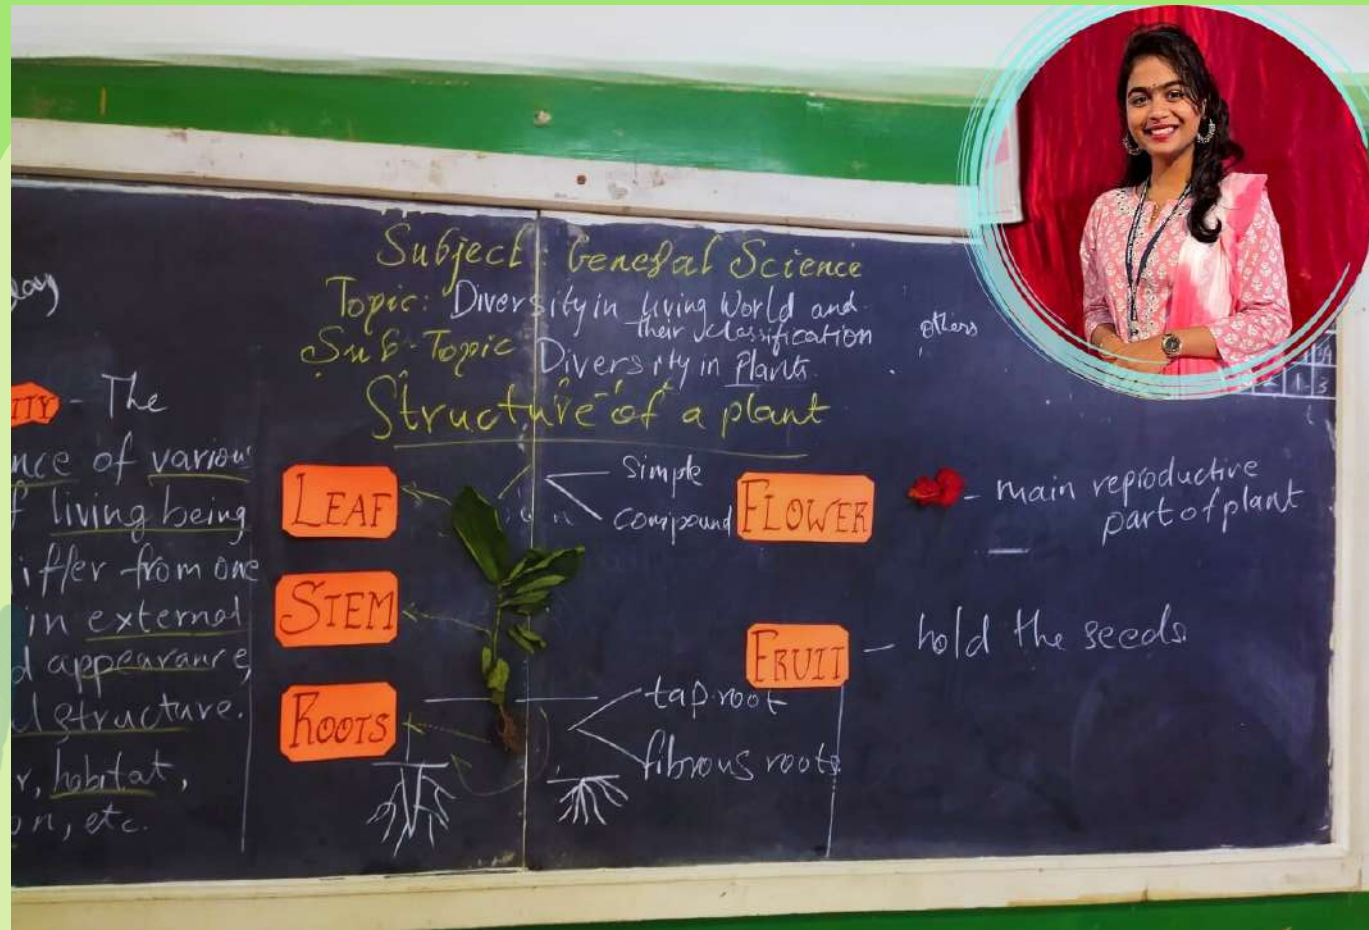 Subject: General Science
Topic: Diversity in living World and
their classification
others
Sub-Topic Diversity in Plants.
Structure of a plant
The
of various
living being
differ from one
in external
appearance,
structure.
habitat,
etc.
LEAF
simple
compound
STEM
ROOTS
tap root
fibrous roots
FLOWER
- main reproductive
part of plant
FRUIT
- hold the seeds